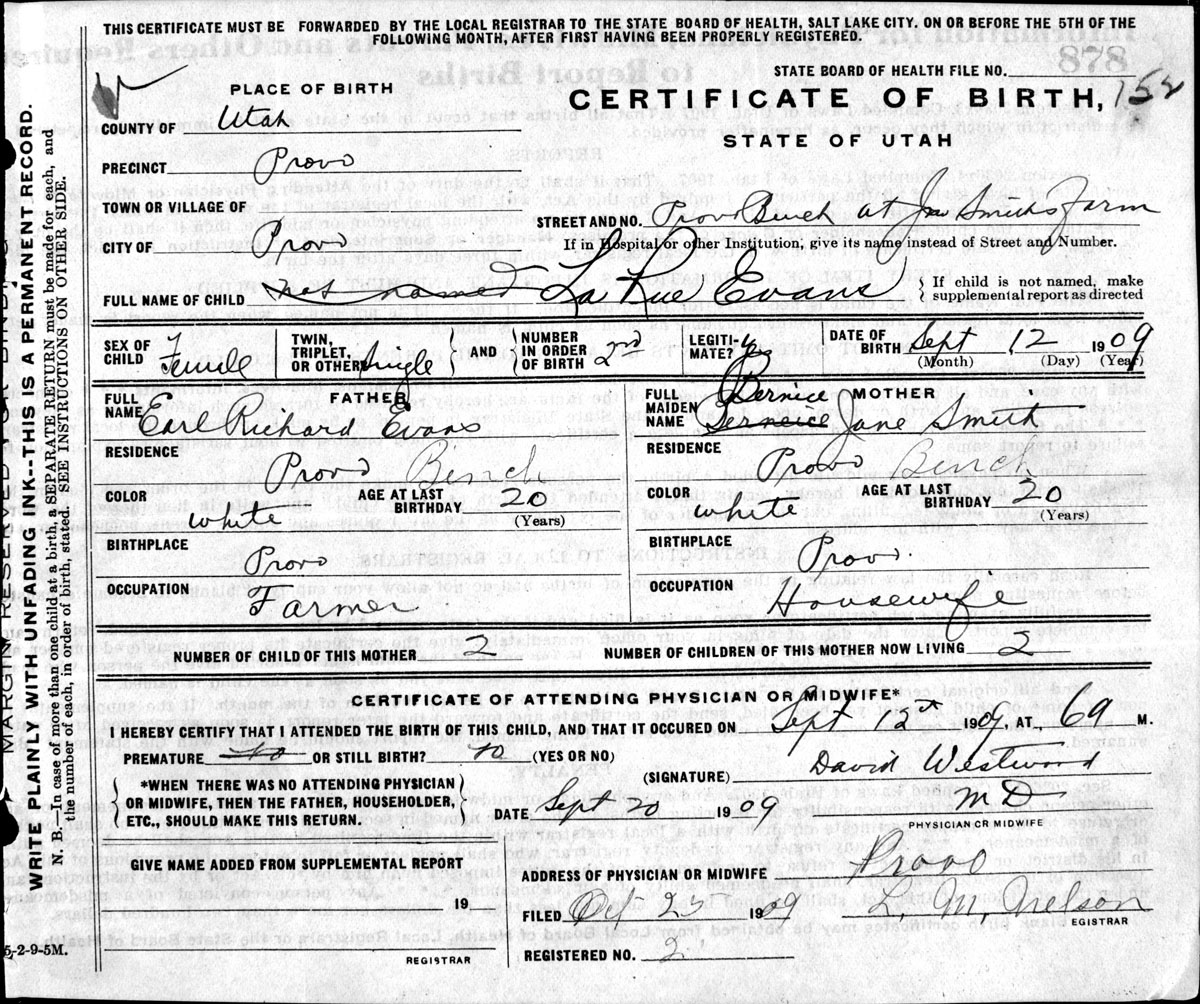 THIS CERTIFICATE MUST BE FORWARDED BY THE LOCAL REGISTRAR TO THE STATE BOARD OF HEALTH, SALT LAKE CITY, ON OR BEFORE THE 5TH OF THE
FOLLOWING MONTH, AFTER FIRST HAVING BEEN PROPERLY REGISTERED.
878
STATE BOARD OF HEALTH FILE NO.
PLACE OF BIRTH
CERTIFICATE OF BIRTH, 152
COUNTY OF Utah
STATE OF UTAH
PRECINCT Provo
TOWN OR VILLAGE OF
STREET AND NO. Provo Bench at Jno Smiths Farm
CITY OF Provo
If in Hospital or other Institution, give its name instead of Street and Number.
FULL NAME OF CHILD not named La Rue Evans
If child is not named, make
supplemental report as directed
SEX OF CHILD Female
TWIN, TRIPLET, OR OTHER Single
AND
NUMBER IN ORDER OF BIRTH 2nd
LEGITIMATE? Yes
DATE OF BIRTH Sept 12 1909
(Month) (Day) (Year)
FATHER
FULL NAME Earl Richard Evans
RESIDENCE Provo Bench
COLOR White
AGE AT LAST BIRTHDAY 20
(Years)
BIRTHPLACE Provo
OCCUPATION Farmer
MOTHER
FULL MAIDEN NAME Bernice Jane Smith
RESIDENCE Provo Bench
COLOR White
AGE AT LAST BIRTHDAY 20
(Years)
BIRTHPLACE Provo.
OCCUPATION Housewife
NUMBER OF CHILD OF THIS MOTHER 2
NUMBER OF CHILDREN OF THIS MOTHER NOW LIVING 2
CERTIFICATE OF ATTENDING PHYSICIAN OR MIDWIFE*
I HEREBY CERTIFY THAT I ATTENDED THE BIRTH OF THIS CHILD, AND THAT IT OCCURED ON Sept 12st 1909, AT 6 A M.
PREMATURE No OR STILL BIRTH? No (YES OR NO)
(SIGNATURE) David Westwood
*WHEN THERE WAS NO ATTENDING PHYSICIAN
OR MIDWIFE, THEN THE FATHER, HOUSEHOLDER,
ETC., SHOULD MAKE THIS RETURN.
DATE Sept 20 1909
M D
PHYSICIAN OR MIDWIFE
GIVE NAME ADDED FROM SUPPLEMENTAL REPORT
19
REGISTRAR
ADDRESS OF PHYSICIAN OR MIDWIFE Provo
FILED Oct 25 1909
L. M. Nelson
EGISTRAR
REGISTERED NO. 2
MARGIN RESERVED FOR BINDING
WRITE PLAINLY WITH UNFADING INK--THIS IS A PERMANENT RECORD.
N. B.—In case of more than one child at a birth, a SEPARATE RETURN must be made for each, and
the number of each, in order of birth, stated. SEE INSTRUCTIONS ON OTHER SIDE.
5-2-9-5M.